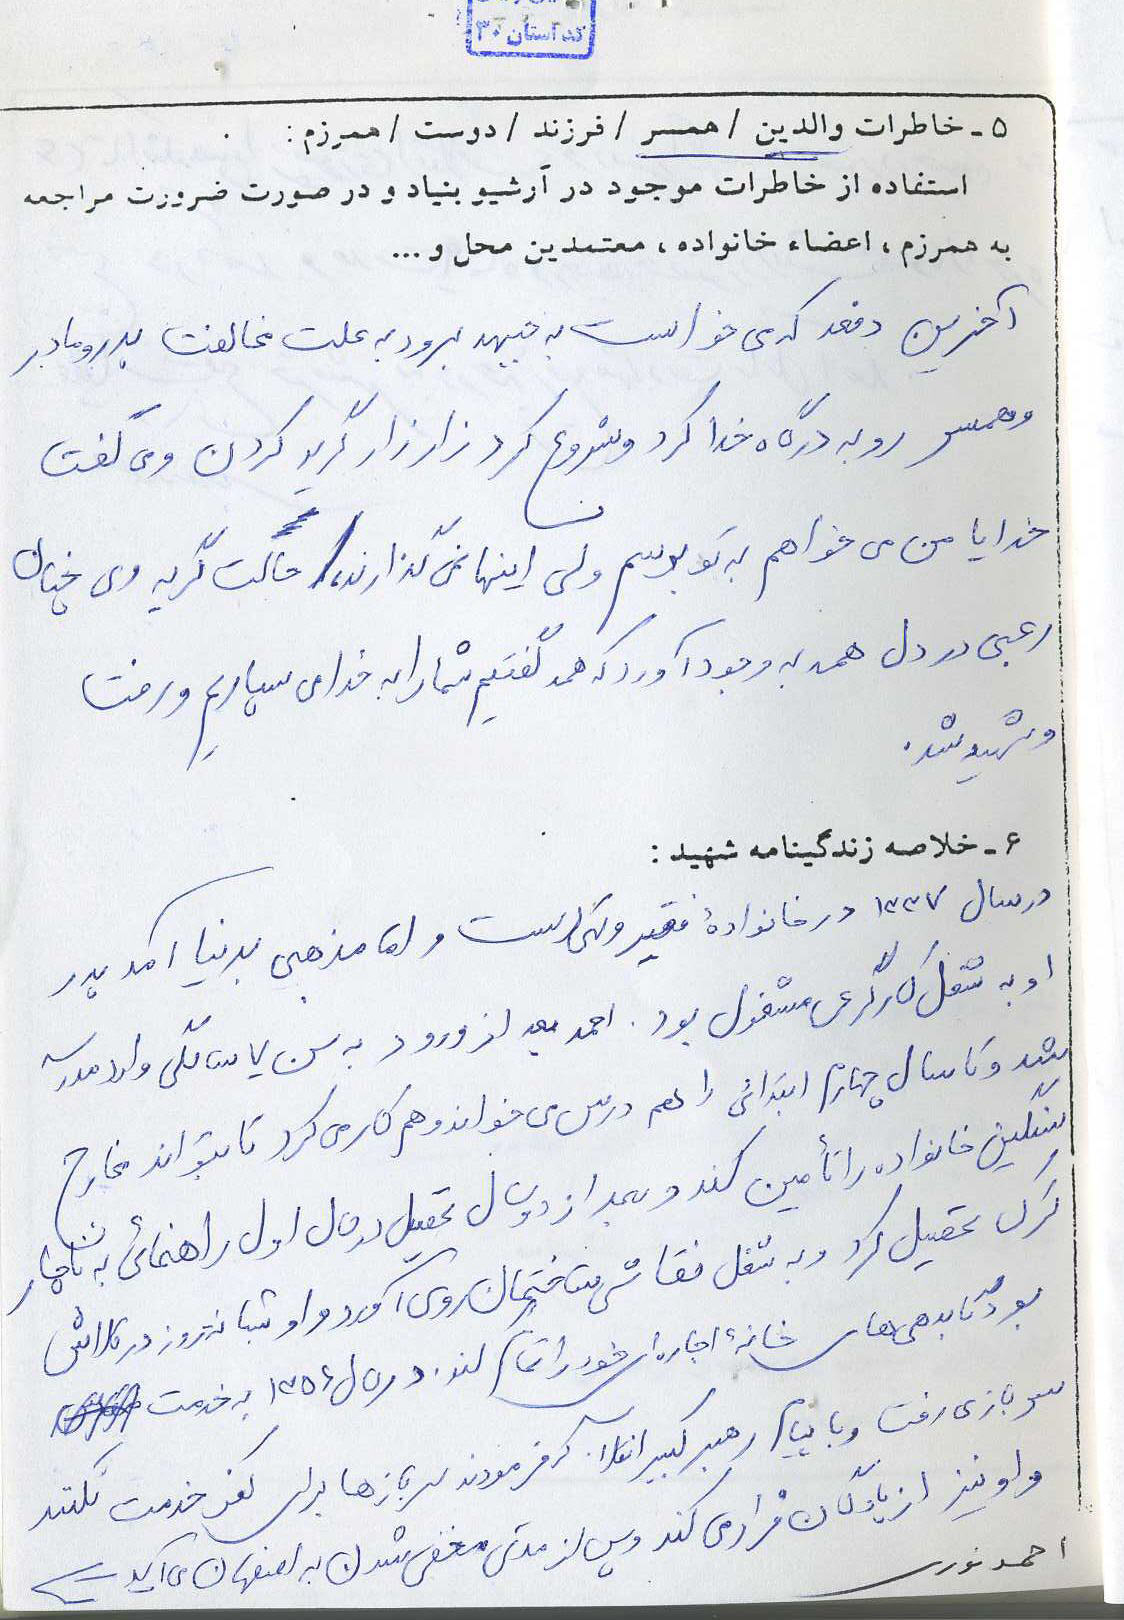 کد استان ۳۰
۵ - خاطرات والدین / همسر / فرزند / دوست / همرزم :
استفاده از خاطرات موجود در آرشیو بنیاد و در صورت ضرورت مراجعه
به همرزم ، اعضاء خانواده ، معتمدین محل و ...
آخرین دفعه که می خواست به جبهه برود به علت مخالفت پدر و مادر
و همسر رو به درگاه خدا کرد و شروع کرد زار زار گریه کردن و می گفت
خدایا من می خواهم به تو برسم ولی اینها نمی گذارند، حالت گریه وی چنان
رعبی در دل همه به وجود آورد که همه گفتیم شما را به خدا می سپاریم و رفت
و شهید شد.
۶ - خلاصه زندگینامه شهید :
در سال ۱۳۳۷ در خانوادهٔ فقیر و تهیدست و اما مذهبی بدنیا آمد پدر
او به شغل کارگری مشغول بود. احمد بعد از ورود به سن ۷ سالگی وارد مدرسه
شد و تا سال چهارم ابتدائی را هم درس می خواند و هم کار می کرد تا بتواند مخارج
سنگین خانواده را تأمین کند و بعد از دو سال تحصیل در سال اول راهنمائی به ناچار
ترک تحصیل کرد و به شغل نقاشی ساختمان روی آورد و او شبانه روز در تلاش
بود تا بدهی های خانهٔ اجاره ای خود را تمام کند. در سال ۱۳۵۶ به خدمت
سربازی رفت و با پیام رهبر کبیر انقلاب که فرمودند سربازها برای کفر خدمت نکنند
و او نیز از پادگان فرار می کند و پس از مدتی مخفی شدن به اصفهان می آید
احمد نوری